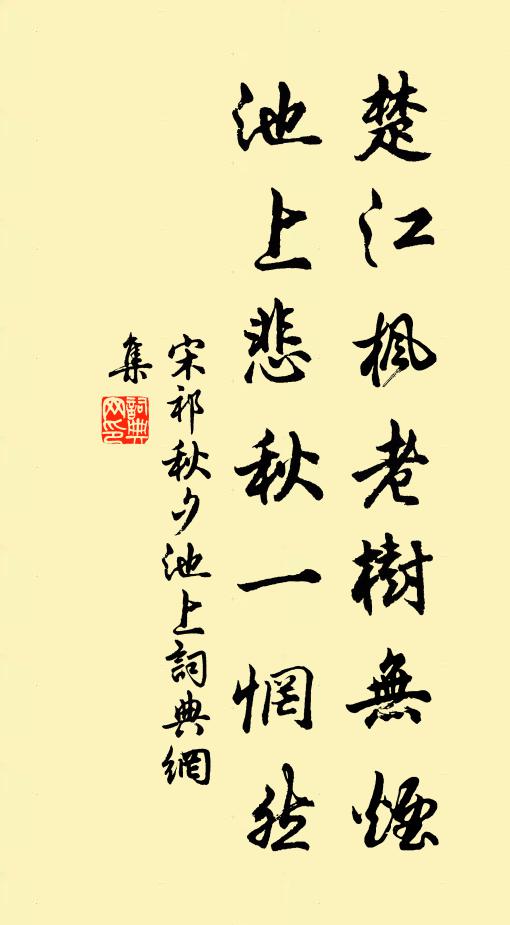 楚江楓老樹無煙
池上悲秋一惘然
宋祁秋夕池上詞典網
集
詞典網印